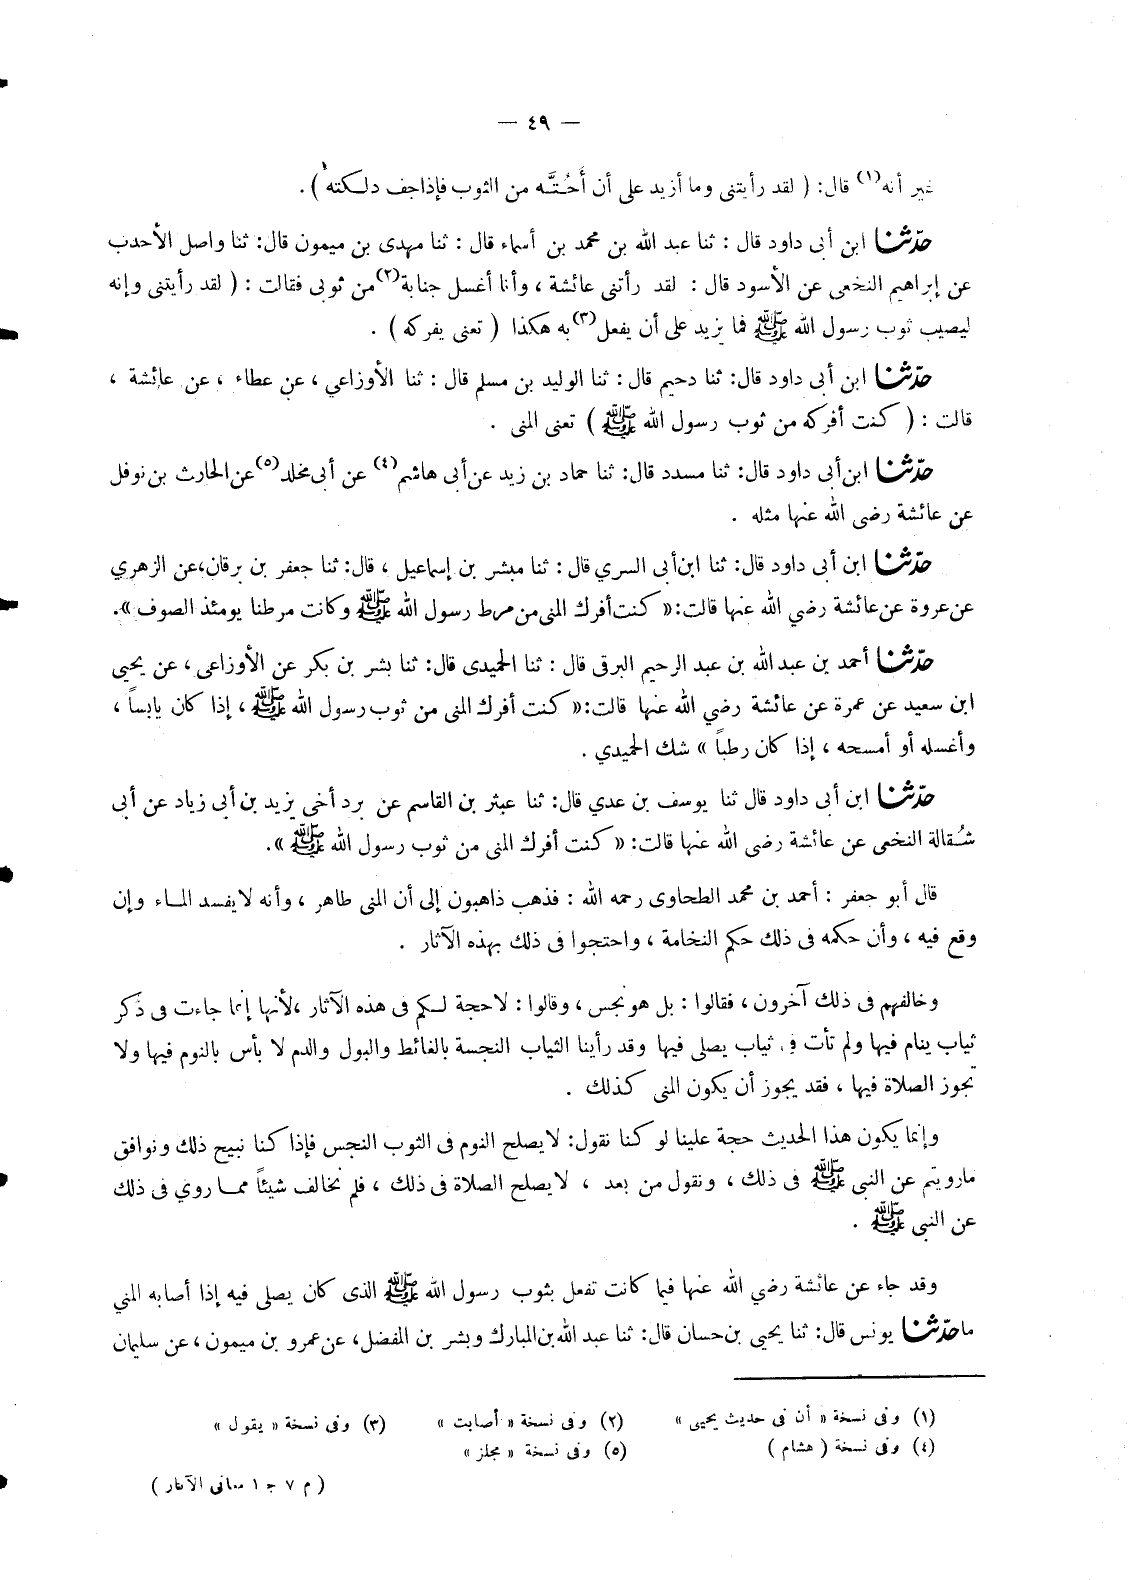 — ٤٩ —
غير أنه(١) قال: ( لقد رأيتنى وما أزيد على أن أَحُتَّه من الثوب فإذا جف دلكته ) .
حدّثنا ابن أبى داود قال : ثنا عبد الله بن محمد بن أسماء قال : ثنا مهدى بن ميمون قال: ثنا واصل الأحدب
عن إبراهيم النخعى عن الأسود قال : لقد رأتنى عائشة ، وأنا أغسل جنابة(٢) من ثوبى فقالت : ( لقد رأيتنى وإنه
ليصيب ثوب رسول الله ﷺ فما يزيد على أن يفعل(٣) به هكذا ( تعنى يفركه ) .
حدّثنا ابن أبى داود قال: ثنا دحيم قال : ثنا الوليد بن مسلم قال : ثنا الأوزاعي ، عن عطاء ، عن عائشة ،
قالت : ( كنت أفركه من ثوب رسول الله ﷺ ) تعنى المنى .
حدّثنا ابن أبى داود قال: ثنا مسدد قال: ثنا حماد بن زيد عن أبى هاشم(٤) عن أبى مخلد(٥) عن الحارث بن نوفل
عن عائشة رضى الله عنها مثله .
حدّثنا ابن أبى داود قال: ثنا ابن أبى السري قال : ثنا مبشر بن إسماعيل ، قال: ثنا جعفر بن برقان، عن الزهري
عن عروة عن عائشة رضي الله عنها قالت: « كنت أفرك المنى من مرط رسول الله ﷺ وكانت مرطنا يومئذ الصوف ».
حدّثنا أحمد بن عبد الله بن عبد الرحيم البرقى قال : ثنا الحميدى قال: ثنا بشر بن بكر عن الأوزاعى ، عن يحيى
ابن سعيد عن عمرة عن عائشة رضي الله عنها قالت: « كنت أفرك المنى من ثوب رسول الله ﷺ ، إذا كان يابساً ،
وأغسله أو أمسحه ، إذا كان رطباً » شك الحميدي .
حدّثنا ابن أبى داود قال ثنا يوسف بن عدي قال: ثنا عبثر بن القاسم عن برد أخى يزيد بن أبى زياد عن أبى
شُقالة النخعى عن عائشة رضى الله عنها قالت: « كنت أفرك المنى من ثوب رسول الله ﷺ ».
قال أبو جعفر : أحمد بن محمد الطحاوى رحمه الله : فذهب ذاهبون إلى أن المنى طاهر ، وأنه لا يفسد المـاء وإن
وقع فيه ، وأن حكمه فى ذلك حكم النخامة ، واحتجوا فى ذلك بهذه الآثار .
وخالفهم فى ذلك آخرون ، فقالوا : بل هو نجس ، وقالوا : لا حجة لـكم فى هذه الآثار ، لأنها إنما جاءت فى ذكر
ثياب ينام فيها ولم تأت فى ثياب يصلى فيها وقد رأينا الثياب النجسة بالغائط والبول والدم لا بأس بالنوم فيها ولا
تجوز الصلاة فيها ، فقد يجوز أن يكون المنى كذلك .
وإنما يكون هذا الحديث حجة علينا لو كنا نقول: لا يصلح النوم فى الثوب النجس فإذا كنا نبيح ذلك ونوافق
مارويتم عن النبى ﷺ فى ذلك ، ونقول من بعد ، لا يصلح الصلاة فى ذلك ، فلم نخالف شيئاً ممـا روي فى ذلك
عن النبى ﷺ .
وقد جاء عن عائشة رضي الله عنها فيما كانت تفعل بثوب رسول الله ﷺ الذى كان يصلى فيه إذا أصابه المني
ما حدّثنا يونس قال: ثنا يحيى بن حسان قال: ثنا عبد الله بن المبارك وبشر بن المفضل، عن عمرو بن ميمون ، عن سليمان
(١) وفى نسخة « أن فى حديث يحيى » (٢) وفى نسخة « أصابت » (٣) وفى نسخة « يقول »
(٤) وفى نسخة ( هشام ) (٥) وفى نسخة « مجلز »
( م ٧ ج ١ معانى الآثار )